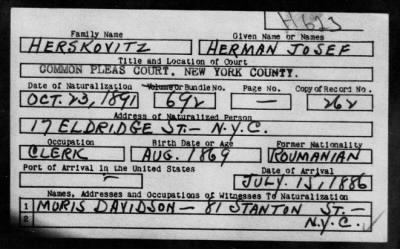 H623
Family Name Given Name or Names
HERSKOVITZ HERMAN JOSEF
Title and Location of Court
COMMON PLEAS COURT, NEW YORK COUNTY.
Date of Naturalization Volume or Bundle No. Page No. Copy of Record No.
OCT. 23, 1891 692 — 262
Address of Naturalized Person
17 ELDRIDGE ST.— N.Y.C.
Occupation Birth Date or Age Former Nationality
CLERK AUG. 1869 ROUMANIAN
Port of Arrival in the United States Date of Arrival
— JULY. 15, 1886
Names, Addresses and Occupations of Witnesses To Naturalization
1 MORIS DAVIDSON — 81 STANTON ST.—
2 N.Y.C.